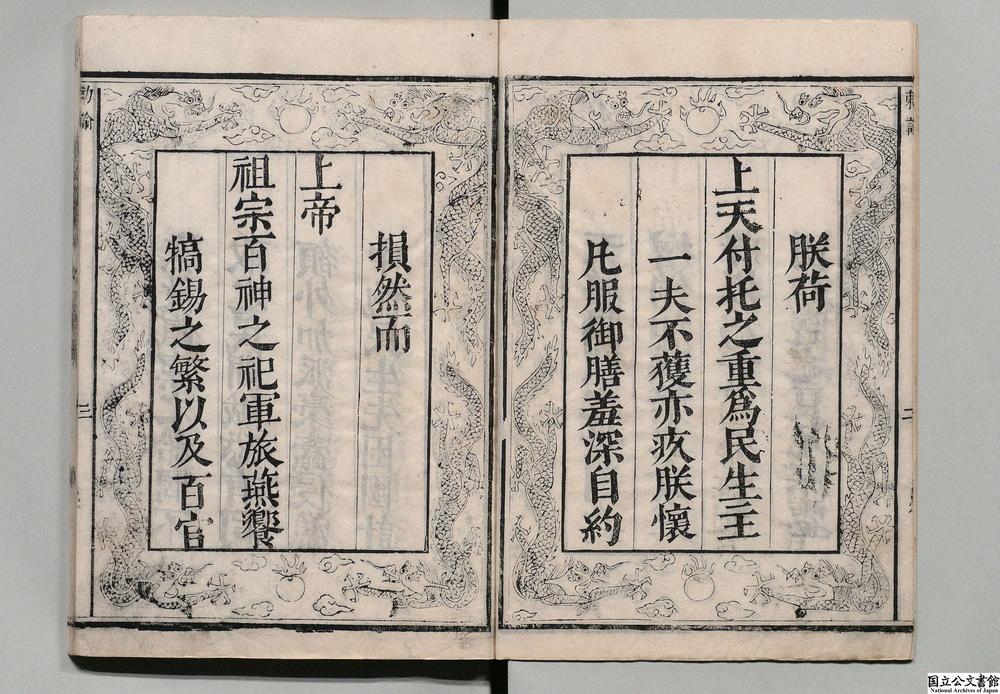 勅諭
二
朕荷
上天付托之重爲民生主
一夫不獲亦疚朕懷
凡服御膳羞深自約
損然而
上帝
祖宗百神之祀軍旅燕饗
犒錫之繁以及百官
勅諭
三
国立公文書館
National Archives of Japan